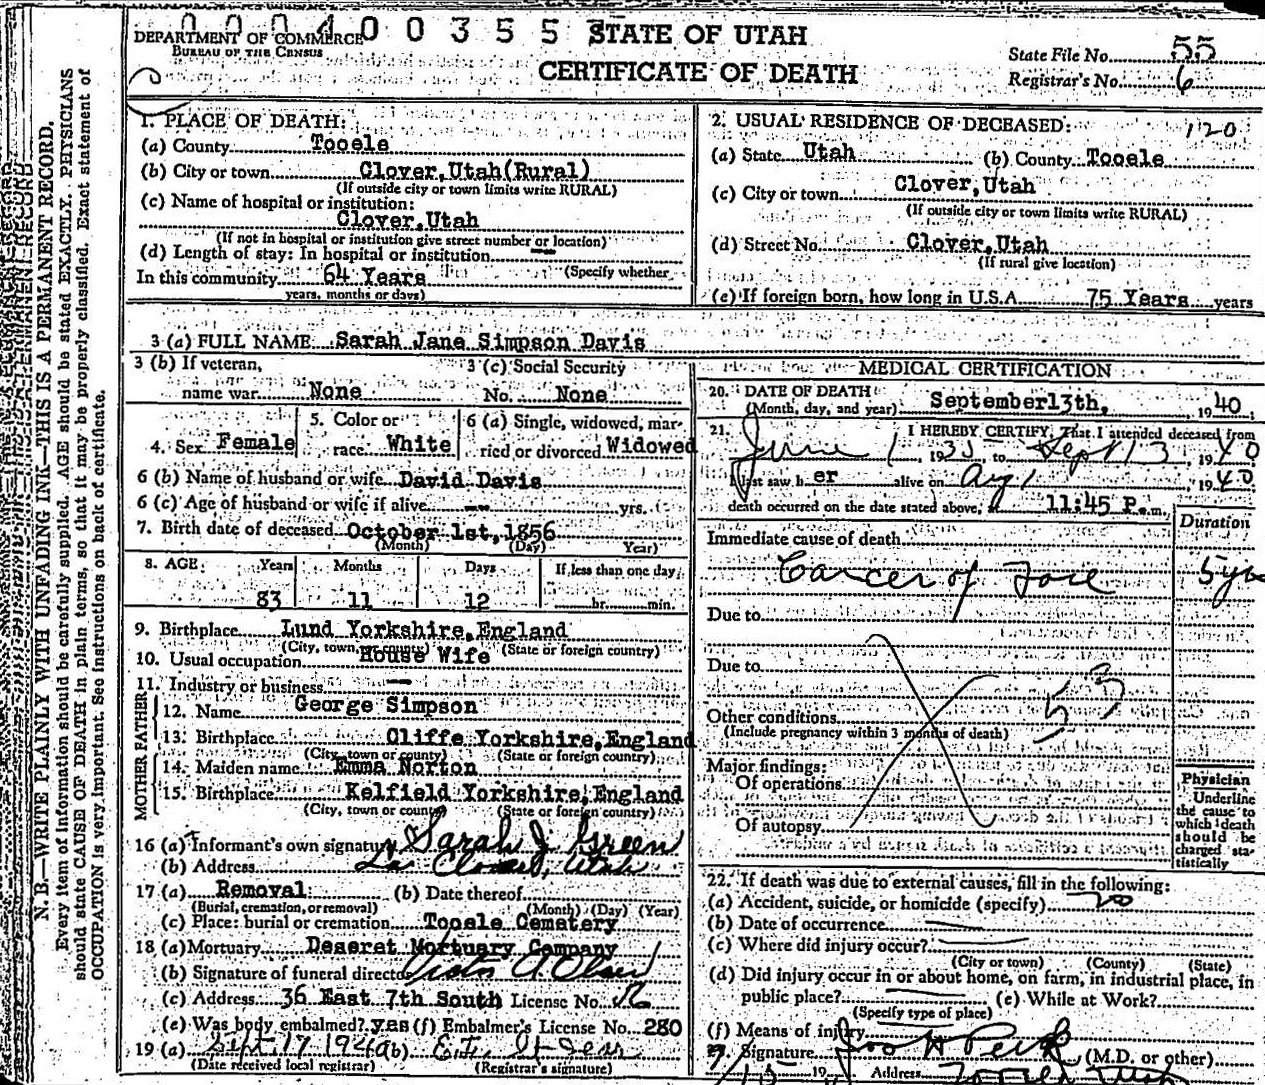 0 0 0 4 0 0 3 5 5
DEPARTMENT OF COMMERCE
BUREAU OF THE CENSUS
STATE OF UTAH
CERTIFICATE OF DEATH
State File No. 55
Registrar's No. 6
1. PLACE OF DEATH:
(a) County Tooele
(b) City or town Clover, Utah (Rural)
(If outside city or town limits write RURAL)
(c) Name of hospital or institution:
Clover, Utah
(If not in hospital or institution give street number or location)
(d) Length of stay: In hospital or institution --
(Specify whether
In this community 64 Years
years, months or days)
2. USUAL RESIDENCE OF DECEASED: 120
(a) State Utah (b) County Tooele
(c) City or town Clover, Utah
(If outside city or town limits write RURAL)
(d) Street No. Clover, Utah
(If rural give location)
(e) If foreign born, how long in U.S.A. 75 Years years
3 (a) FULL NAME Sarah Jane Simpson Davis
3 (b) If veteran, name war None
3 (c) Social Security No. None
4. Sex Female
5. Color or race White
6 (a) Single, widowed, married or divorced Widowed
6 (b) Name of husband or wife David Davis
6 (c) Age of husband or wife if alive -- yrs.
7. Birth date of deceased October 1st, 1856
(Month) (Day) Year)
8. AGE: Years Months Days If less than one day
83 11 12 hr. min.
9. Birthplace Lund Yorkshire, England
(City, town, or county) (State or foreign country)
10. Usual occupation House Wife
11. Industry or business —
FATHER
12. Name George Simpson
13. Birthplace Cliffe Yorkshire, England
(City, town or county) (State or foreign country)
MOTHER
14. Maiden name Emma Norton
15. Birthplace Kelfield Yorkshire, England
(City, town or county) (State or foreign country)
16 (a) Informant's own signature Sarah J. Green
(b) Address Clover, Utah
17 (a) Removal (b) Date thereof
(Burial, cremation, or removal) (Month) (Day) (Year)
(c) Place: burial or cremation Tooele Cemetery
18 (a) Mortuary Deseret Mortuary Company
(b) Signature of funeral director A. Olsen
(c) Address 36 East 7th South License No.
(e) Was body embalmed? yes (f) Embalmer's License No. 280
19 (a) Sept. 17 1940 (b) E. I.
(Date received local registrar) (Registrar's signature)
MEDICAL CERTIFICATION
20. DATE OF DEATH
(Month, day, and year) September 13th, 1940
21. I HEREBY CERTIFY, That I attended deceased from
June 1, 1935, to Sept 13, 1940
I last saw her alive on Aug 1 1940
death occurred on the date stated above, at 11:45 P.m.
Duration
Immediate cause of death
Cancer of Face 5 yrs
Due to
Due to
53
Other conditions
(Include pregnancy within 3 months of death)
Major findings:
Of operations
Of autopsy
Physician
Underline
the cause to
which death
should be
charged sta-
tistically
22. If death was due to external causes, fill in the following:
(a) Accident, suicide, or homicide (specify) no
(b) Date of occurrence
(c) Where did injury occur?
(City or town) (County) (State)
(d) Did injury occur in or about home, on farm, in industrial place, in
public place? (e) While at Work?
(Specify type of place)
(f) Means of injury
Signature Jos H Peck (M.D. or other)
9/15 19 Address Tooele Utah
N. B.—WRITE PLAINLY WITH UNFADING INK—THIS IS A PERMANENT RECORD.
Every item of information should be carefully supplied. AGE should be stated EXACTLY. PHYSICIANS
should state CAUSE OF DEATH in plain terms, so that it may be properly classified. Exact statement of
OCCUPATION is very important. See instructions on back of certificate.